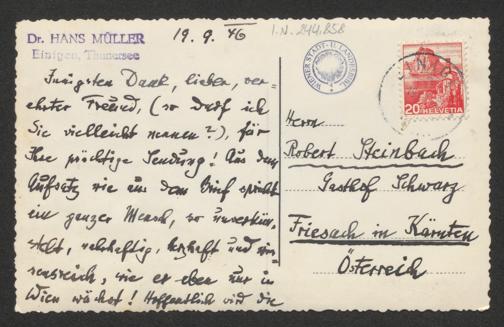 Dr. HANS MÜLLER
Einigen, Thunersee
19.9.46
I.N. 244.858
WIENER STADT- U. LANDESBIBL.
20 HELVETIA
Innigsten Dank, lieber, ver-
ehrter Freund, (so darf ich
Sie vielleicht nennen?), für
Ihre prächtige Sendung! Aus dem
Aufsatz wie aus dem Brief spricht
ein ganzer Mensch, so unverkün-
stelt, wahrhaftig, herzhaft und
wie er eben nur in
Wien wächst! Hoffentlich wird die
Herrn
Robert Steinbach
Gasthof Schwarz
Friesach in Kärnten
Österreich